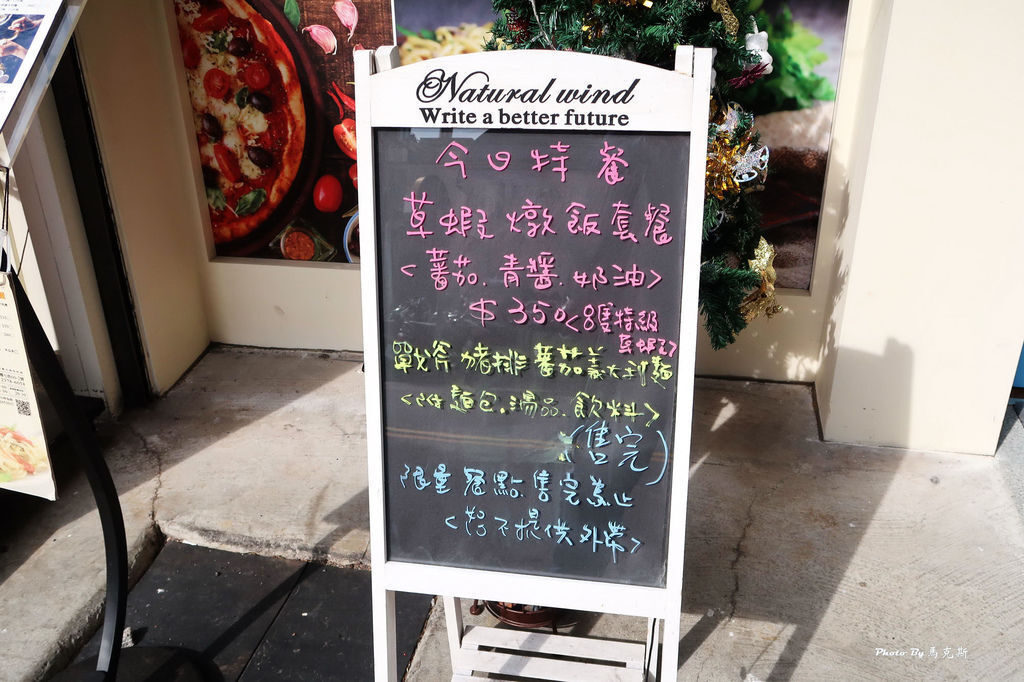 Natural wind
Write a better future
今日特餐
草蝦燉飯套餐
<蕃茄.青醬.奶油>
$350<8隻特級
草蝦>
戰斧豬排蕃茄義大利麵
<附麵包.湯品.飲料>
(售完)
限量餐點售完為止
<恕不提供外帶>
Photo By 馬克斯